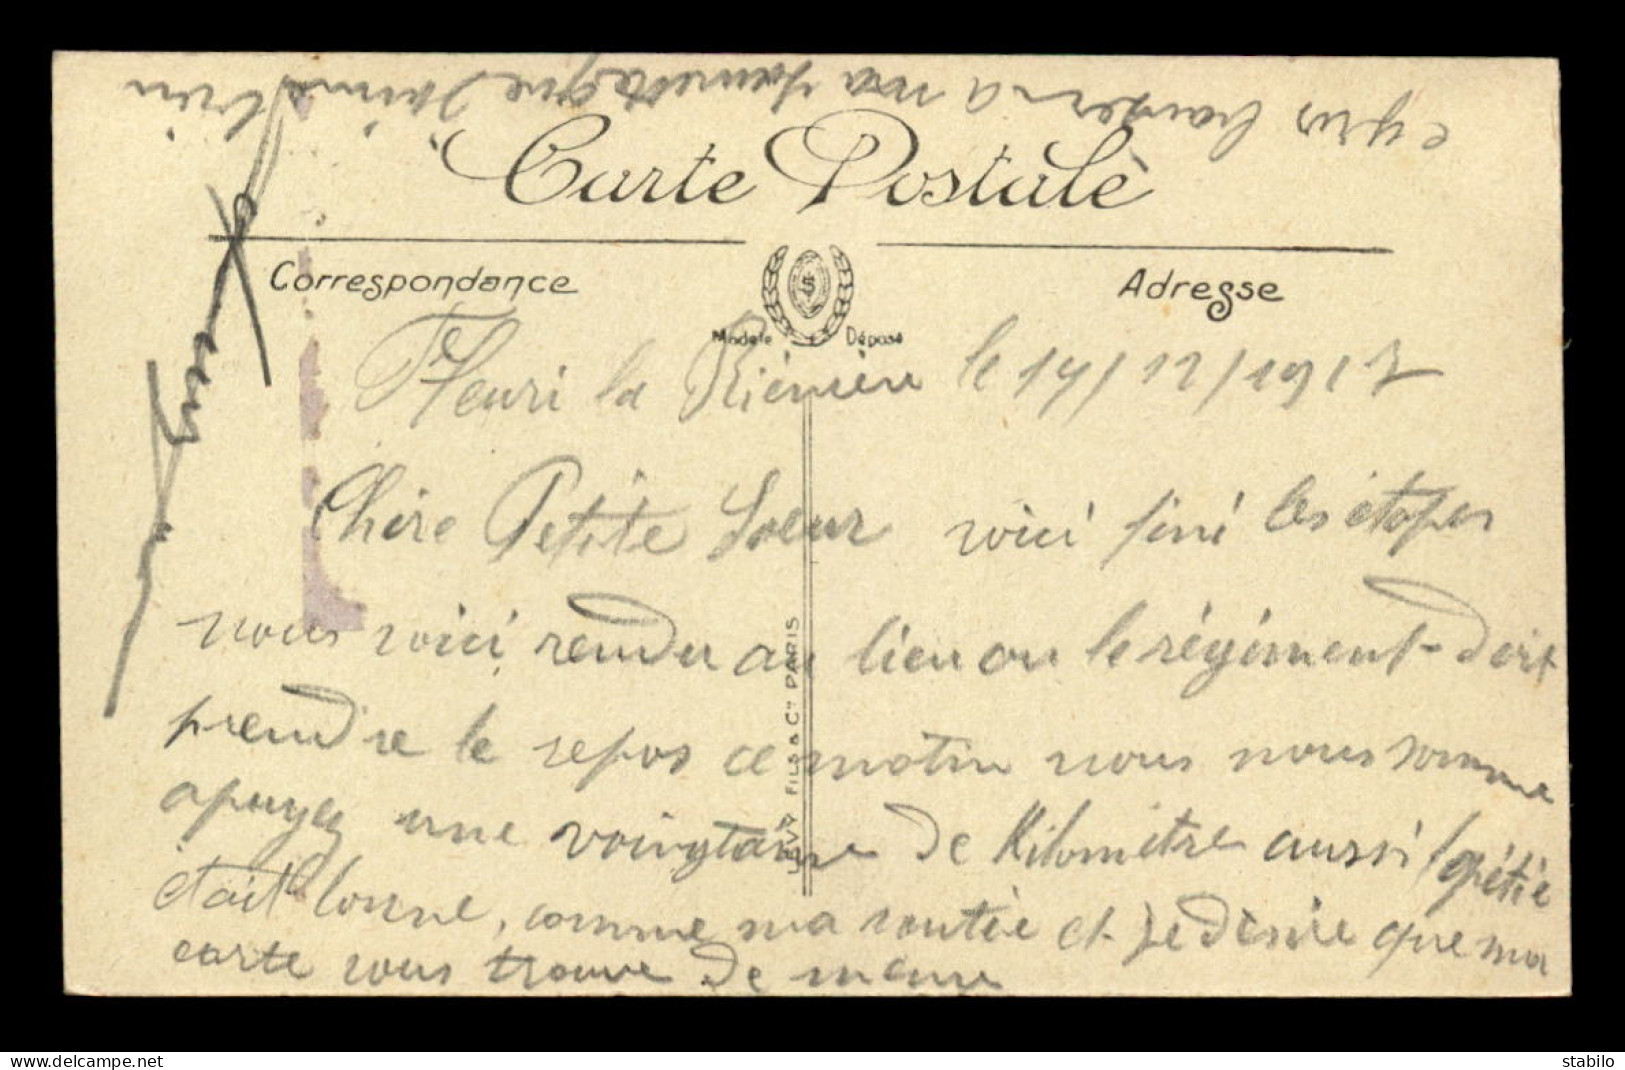 Carte Postale
Correspondance
Adresse
Modele Déposé
Fleuri la Rivière le 14/12/1917
Chère Petite Soeur voici fini les étapes
nous voici rendu au lieu ou le régiment doit
prendre le repos ce matin nous nous somme
apuyez une voingtaine de Kilomètre aussi l'apétie
était bonne, comme ma santée et je désire que ma
carte vous trouve de meme
LEVY FILS & Cie PARIS